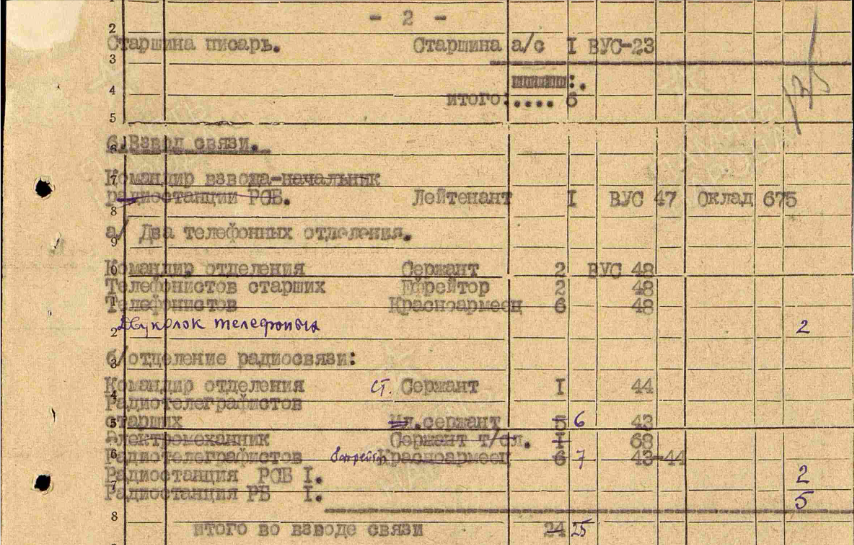 - 2 -
135
Старшина писарь. Старшина а/с I ВУС-23
итого:.... 6
6.Взвод связи.
Командир взвода-начальник
радиостанции РСБ. Лейтенант I ВУС 47 Оклад 675
а/ Два телефонных отделения.
Командир отделения Сержант 2 ВУС 48
Телефонистов старших Ефрейтор 2 48
Телефонистов Красноармеец 6 48
Двуколок телефонных 2
б/отделение радиосвязи:
Командир отделения ст. Сержант I 44
Радиотелеграфистов
старших Мл.сержант 5 6 43
Электромеханник Сержант т/сл. I 68
Радиотелеграфистов Красноармеец 6 7 43-44
Радиостанция РСБ I. 2
Радиостанция РБ I. 5
итого во взводе связи 24 25